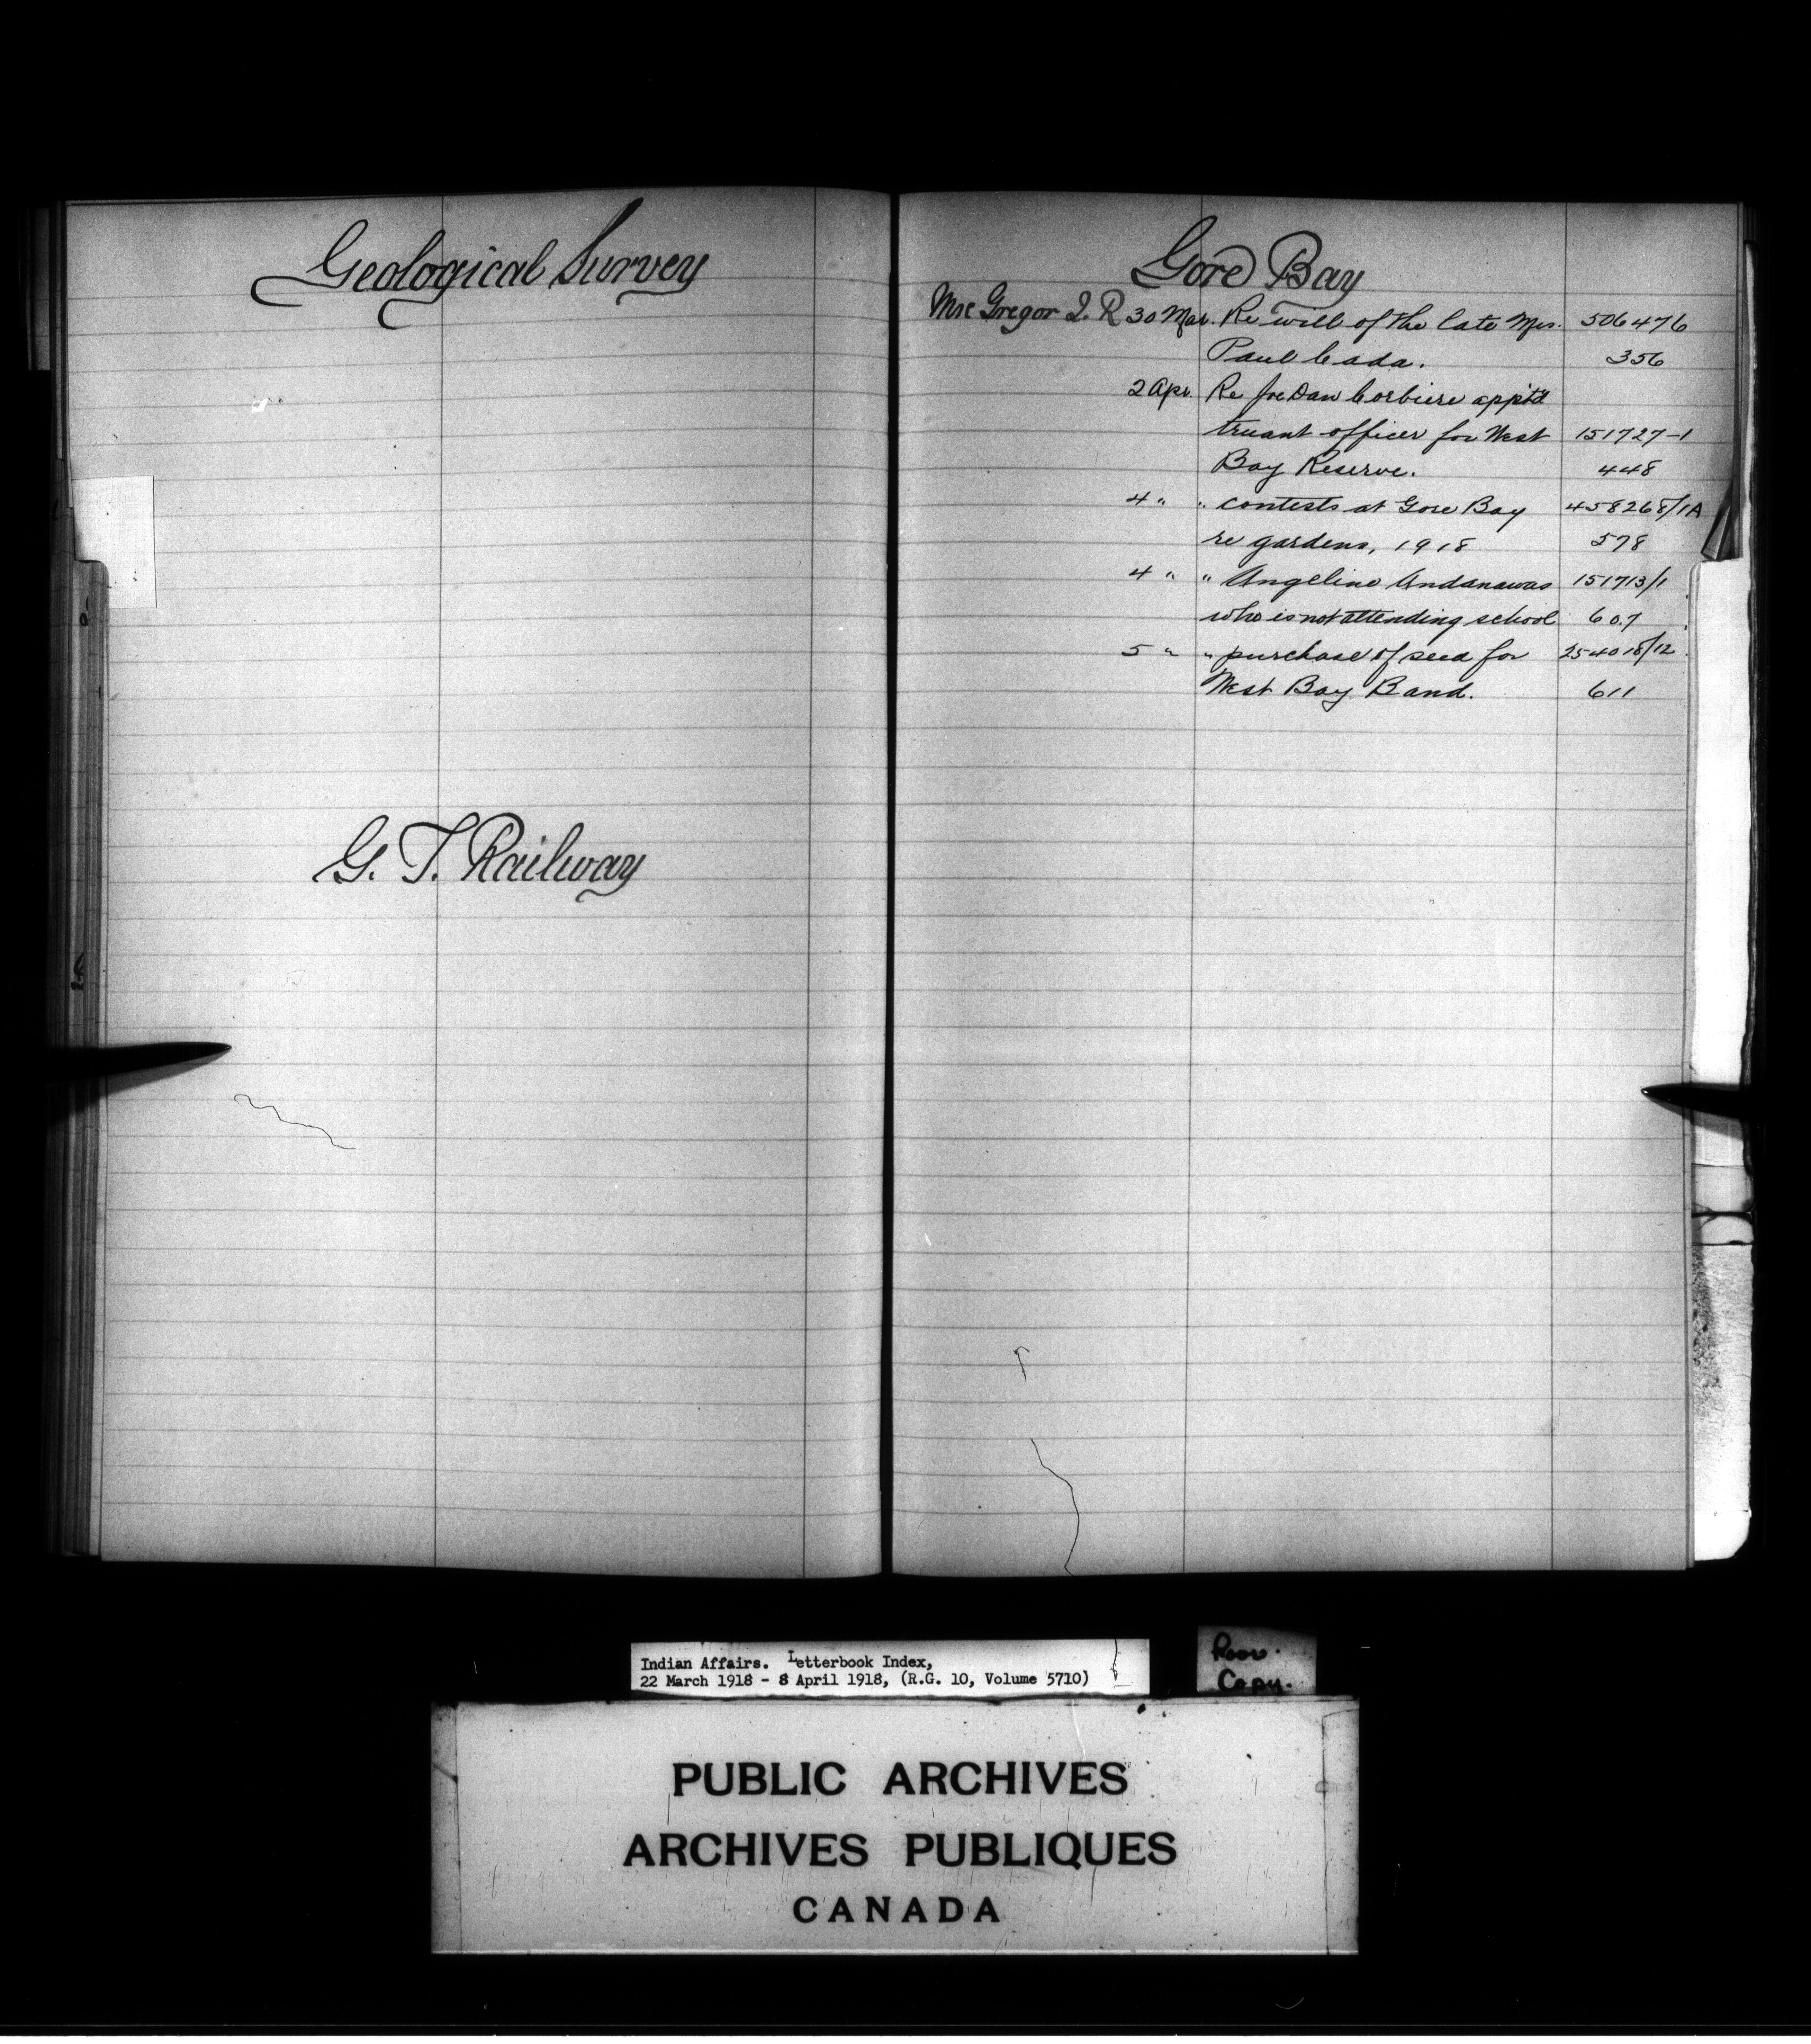 Geological Survey
G. T. Railway
Gore Bay
Mac Gregor I. R 30 Mar. Re will of the late Mrs. 506476
Paul Cada. 356
2 Apr. Re Joe Dan Corbiere appt'd
truant officer for West 151727-1
Bay Reserve. 448
4 " " contests at Gore Bay 458268/1A
re gardens, 1918 578
4 " " Angeline Andanawas 151713/1
who is not attending school 607
5 " " purchase of seed for 254018/12
West Bay Band. 611
Indian Affairs. Letterbook Index,
22 March 1918 - 8 April 1918, (R.G. 10, Volume 5710)
Poor
Copy.
PUBLIC ARCHIVES
ARCHIVES PUBLIQUES
CANADA